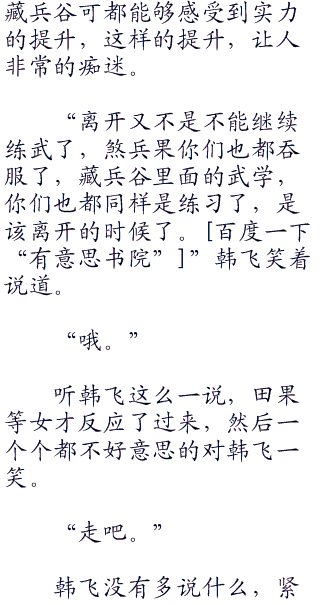 藏兵谷可都能够感受到实力
的提升，这样的提升，让人
非常的痴迷。
“离开又不是不能继续
练武了，煞兵果你们也都吞
服了，藏兵谷里面的武学，
你们也都同样是练习了，是
该离开的时候了。[百度一下
“有意思书院”]”韩飞笑着
说道。
“哦。”
听韩飞这么一说，田果
等女才反应了过来，然后一
个个都不好意思的对韩飞一
笑。
“走吧。”
韩飞没有多说什么，紧